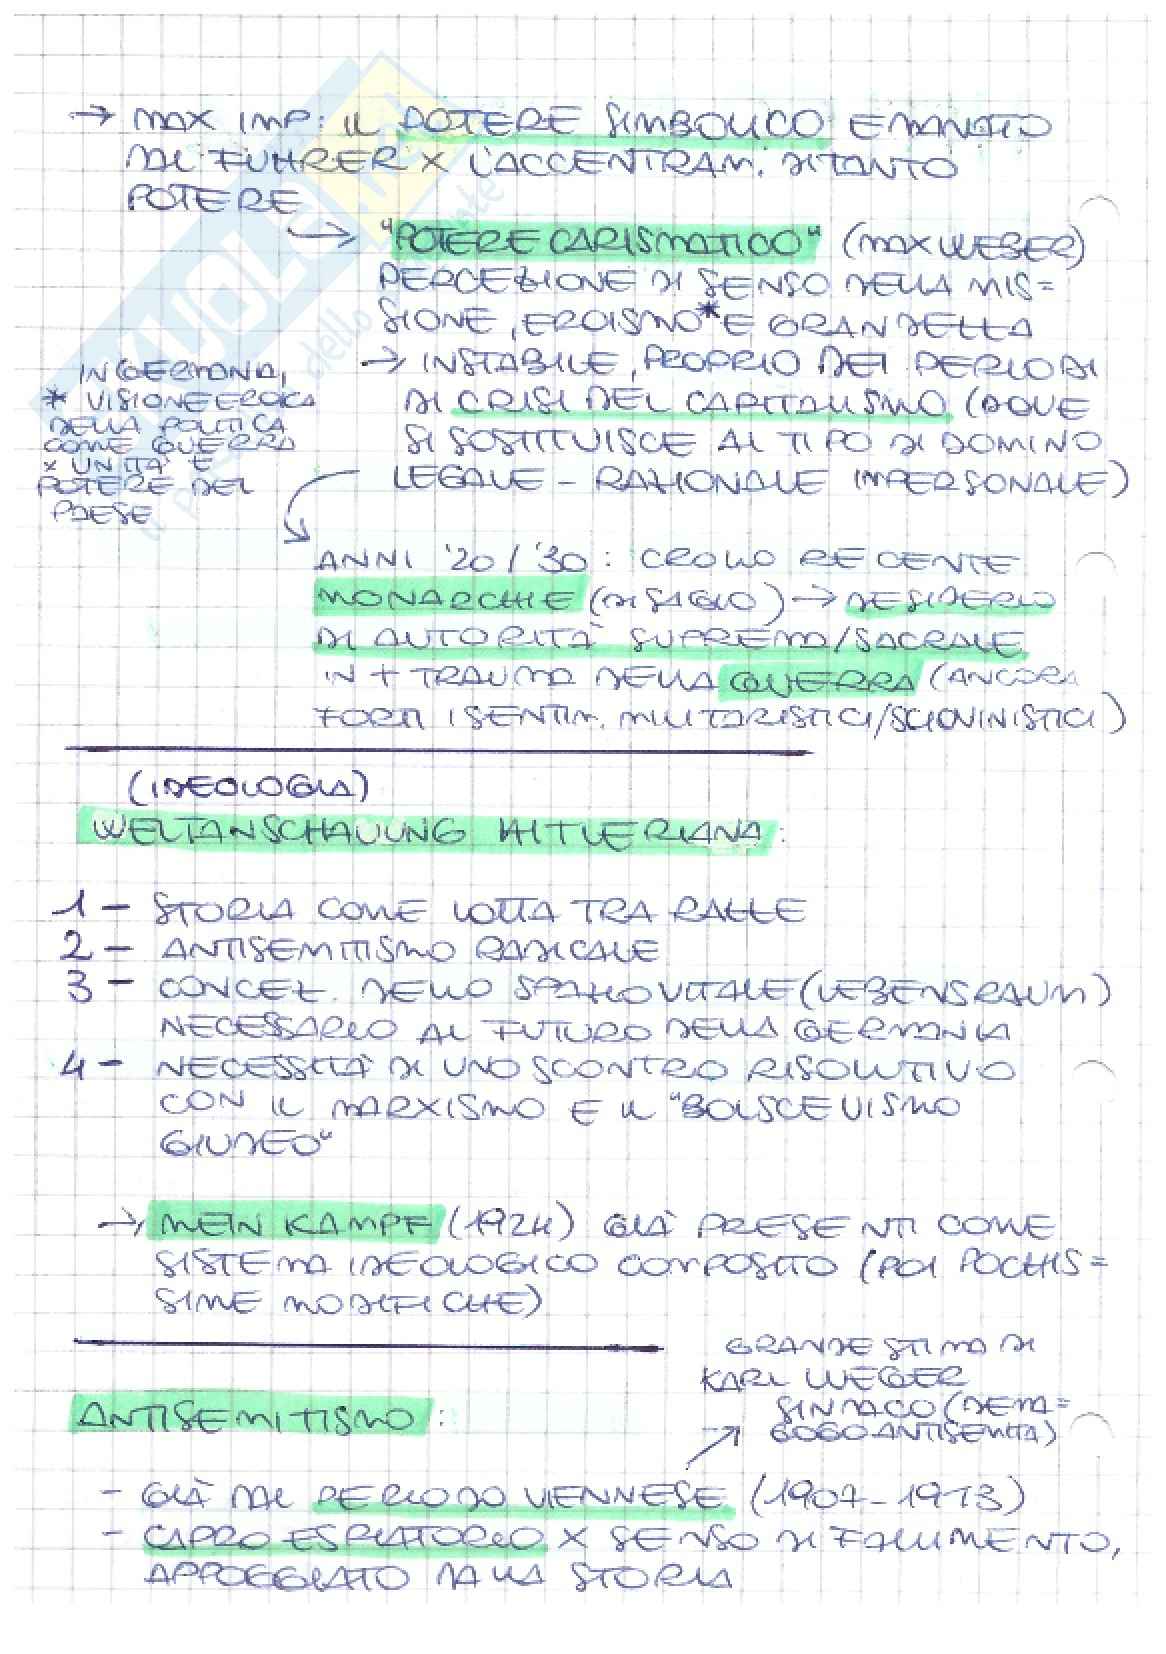 → MAX IMP: IL POTERE SIMBOLICO EMANATO
DAL FUHRER X L'ACCENTRAM. DI TANTO
POTERE
→ "POTERE CARISMATICO" (MAX WEBER)
PERCEZIONE DI SENSO DELLA MIS=
SIONE, EROISMO* E GRANDEZZA
→ INSTABILE, PROPRIO DEI PERIODI
DI CRISI DEL CAPITALISMO (DOVE
SI SOSTITUISCE AL TIPO DI DOMINO
LEGALE - RAZIONALE IMPERSONALE)
IN GERMANIA,
* VISIONE EROICA
DELLA POLITICA
COME GUERRA
X UNITÀ E
POTERE DEL
PAESE
ANNI '20/'30: CROLLO RECENTE
MONARCHIE (DISAGIO) → DESIDERIO
DI AUTORITÀ SUPREMA/SACRALE
IN + TRAUMA DELLA GUERRA (ANCORA
FORTI I SENTIM. MILITARISTICI/SCIOVINISTICI)
(IDEOLOGIA)
WELTANSCHAUUNG HITLERIANA:
1 - STORIA COME LOTTA TRA RAZZE
2 - ANTISEMITISMO RADICALE
3 - CONCEZ. DELLO SPAZIO VITALE (LEBENSRAUM)
NECESSARIO AL FUTURO DELLA GERMANIA
4 - NECESSITÀ DI UNO SCONTRO RISOLUTIVO
CON IL MARXISMO E IL "BOLSCEVISMO
GIUDEO"
→ MEIN KAMPF (1924) GIÀ PRESENTI COME
SISTEMA IDEOLOGICO COMPOSITO (POI POCHIS=
SIME MODIFICHE)
GRANDE STIMA DI
KARL WEGER
SINDACO (DEMA=
GOGO ANTISEMITA)
ANTISEMITISMO:
- GIÀ DAL PERIODO VIENNESE (1907-1913)
- CAPRO ESPIATORIO X SENSO DI FALLIMENTO,
APPOGGIATO DALLA STORIA